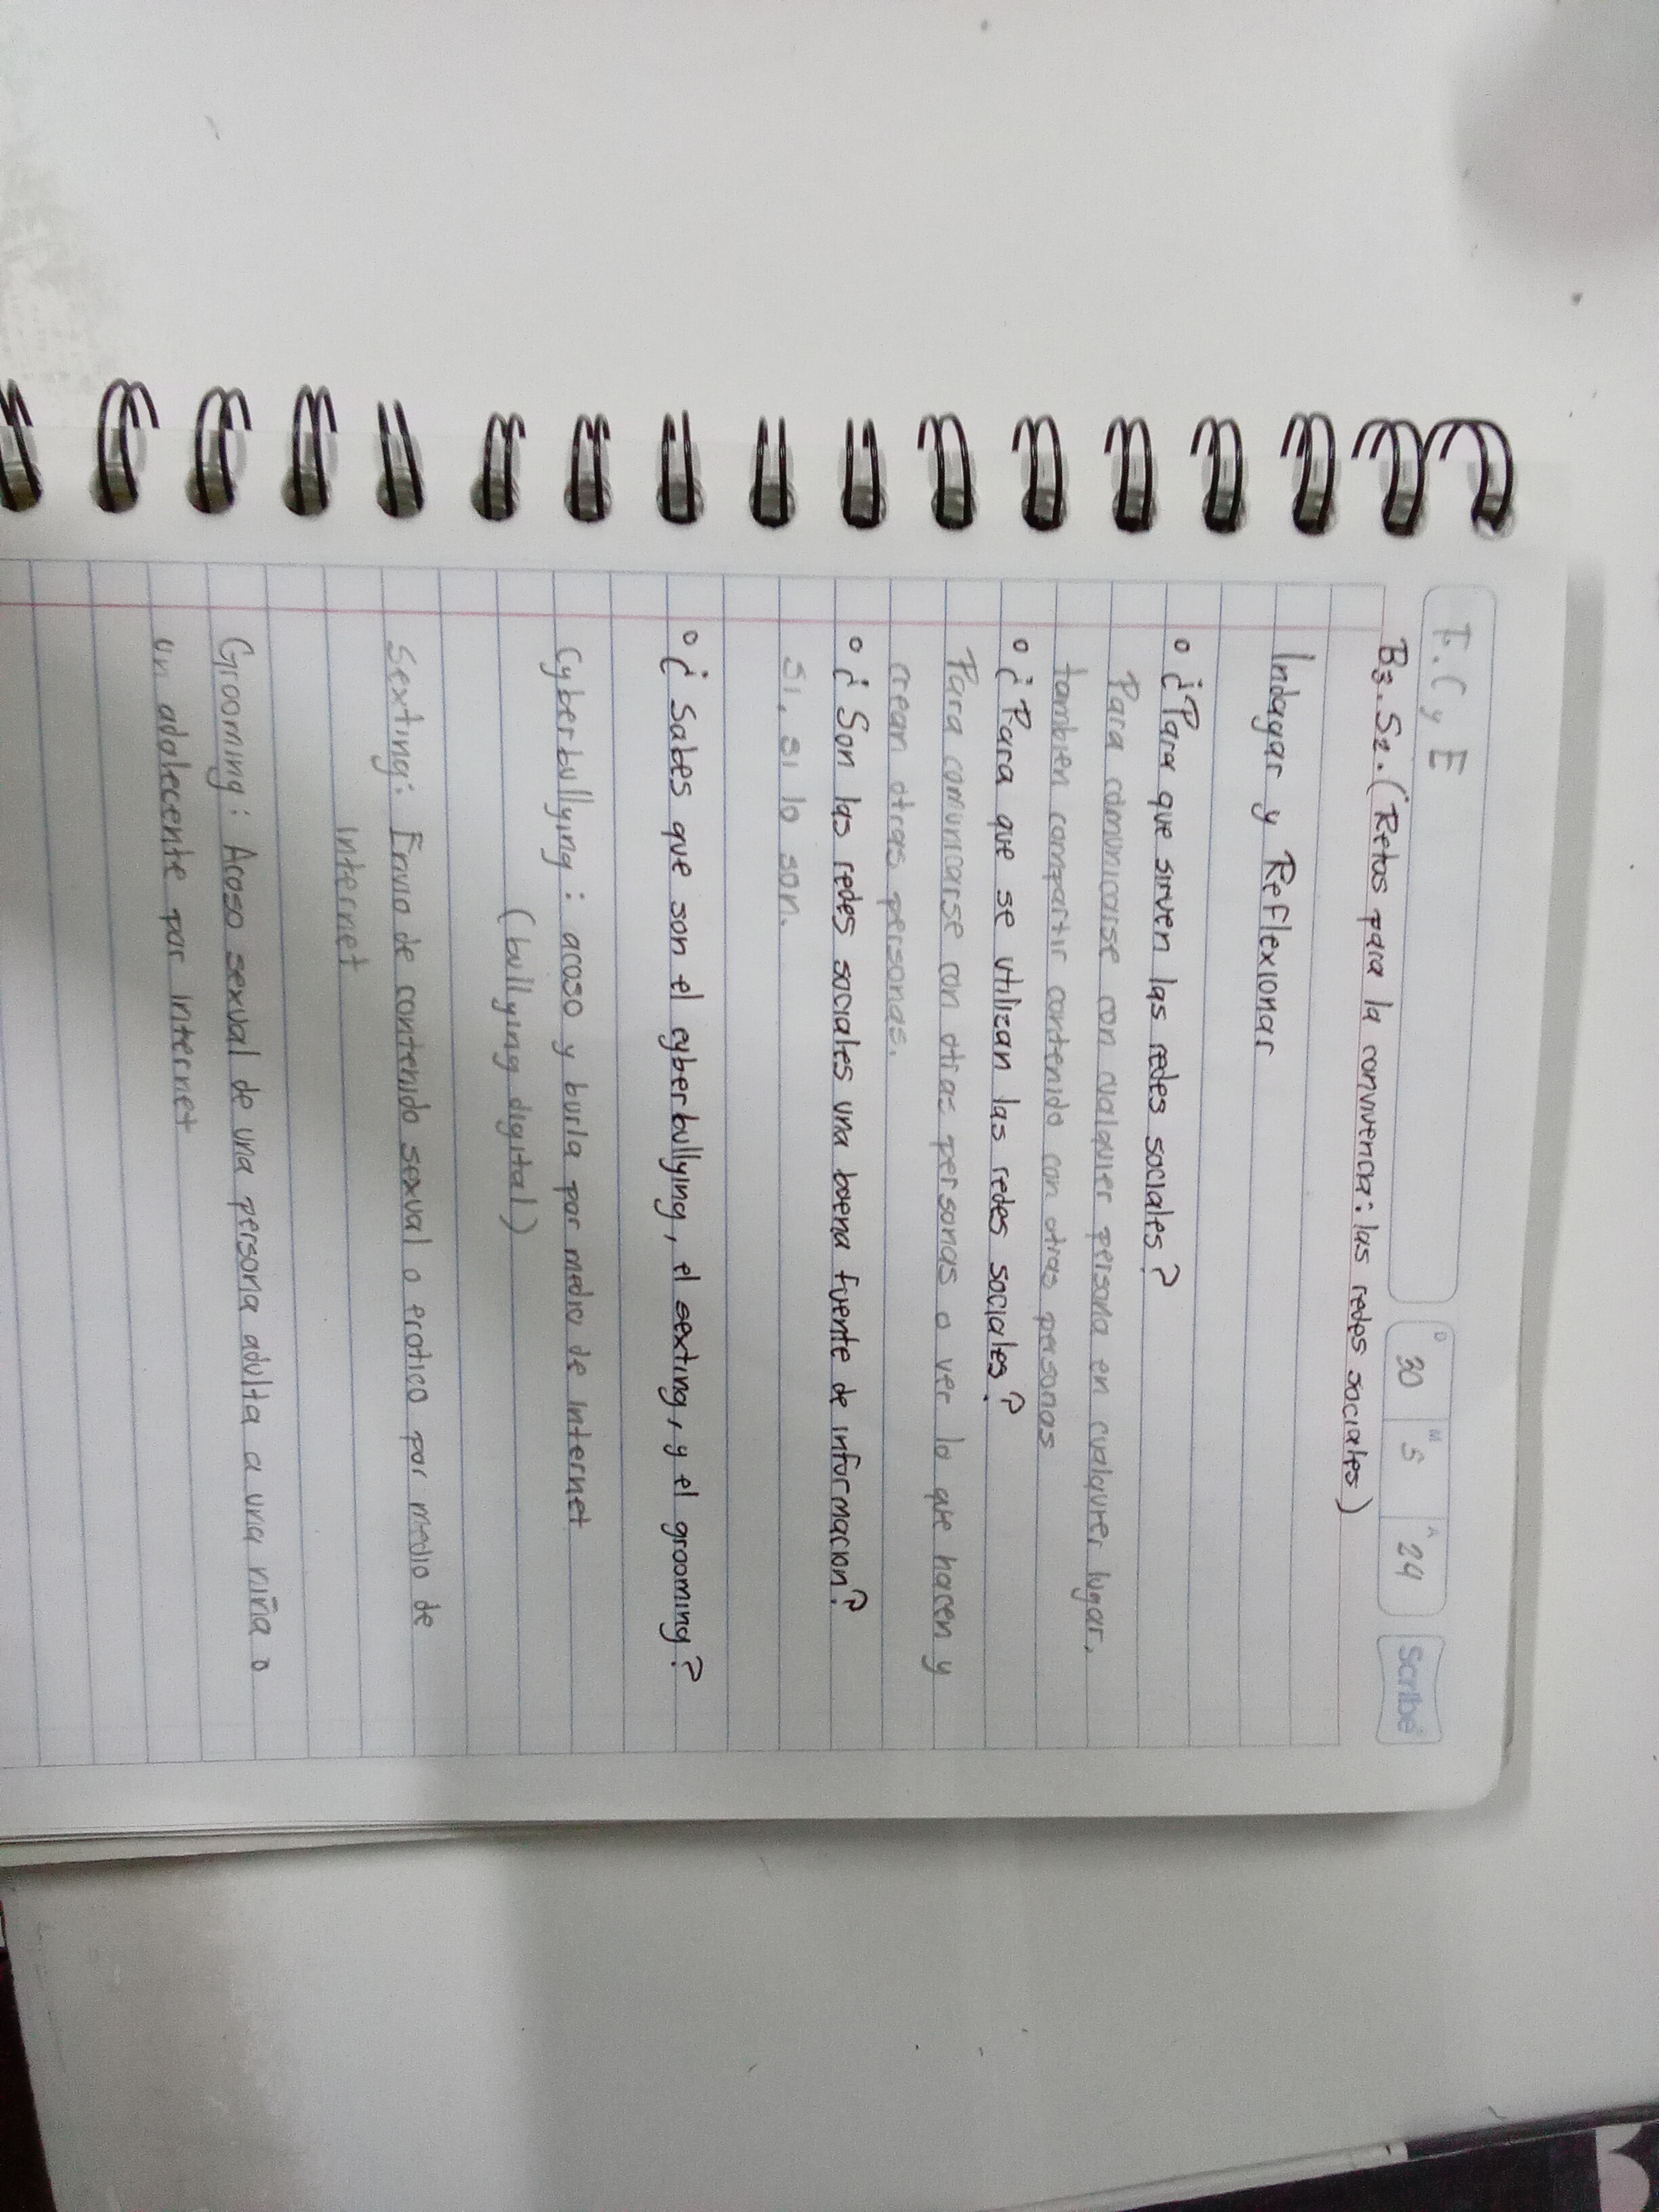 F. C y E
D 30 M 5 A 24 Scribe
B3. S2. (Retos para la convivencia: las redes sociales)
Indagar y Reflexionar
° ¿Para que sirven las redes sociales?
Para comunicarse con cualquier persona en cualquier lugar,
tambien compartir contenido con otras personas
° ¿Para que se utilizan las redes sociales?
Para comunicarse con otras personas o ver lo que hacen y
crean otras personas.
° ¿Son las redes sociales una buena fuente de informacion?
Si, si lo son.
° ¿Sabes que son el cyberbullying, el sexting, y el grooming?
Cyberbullying: acoso y burla por medio de internet
(bullying digital)
Sexting: Envio de contenido sexual o erotico por medio de
internet
Grooming: Acoso sexual de una persona adulta a una niña o
un adolecente por internet